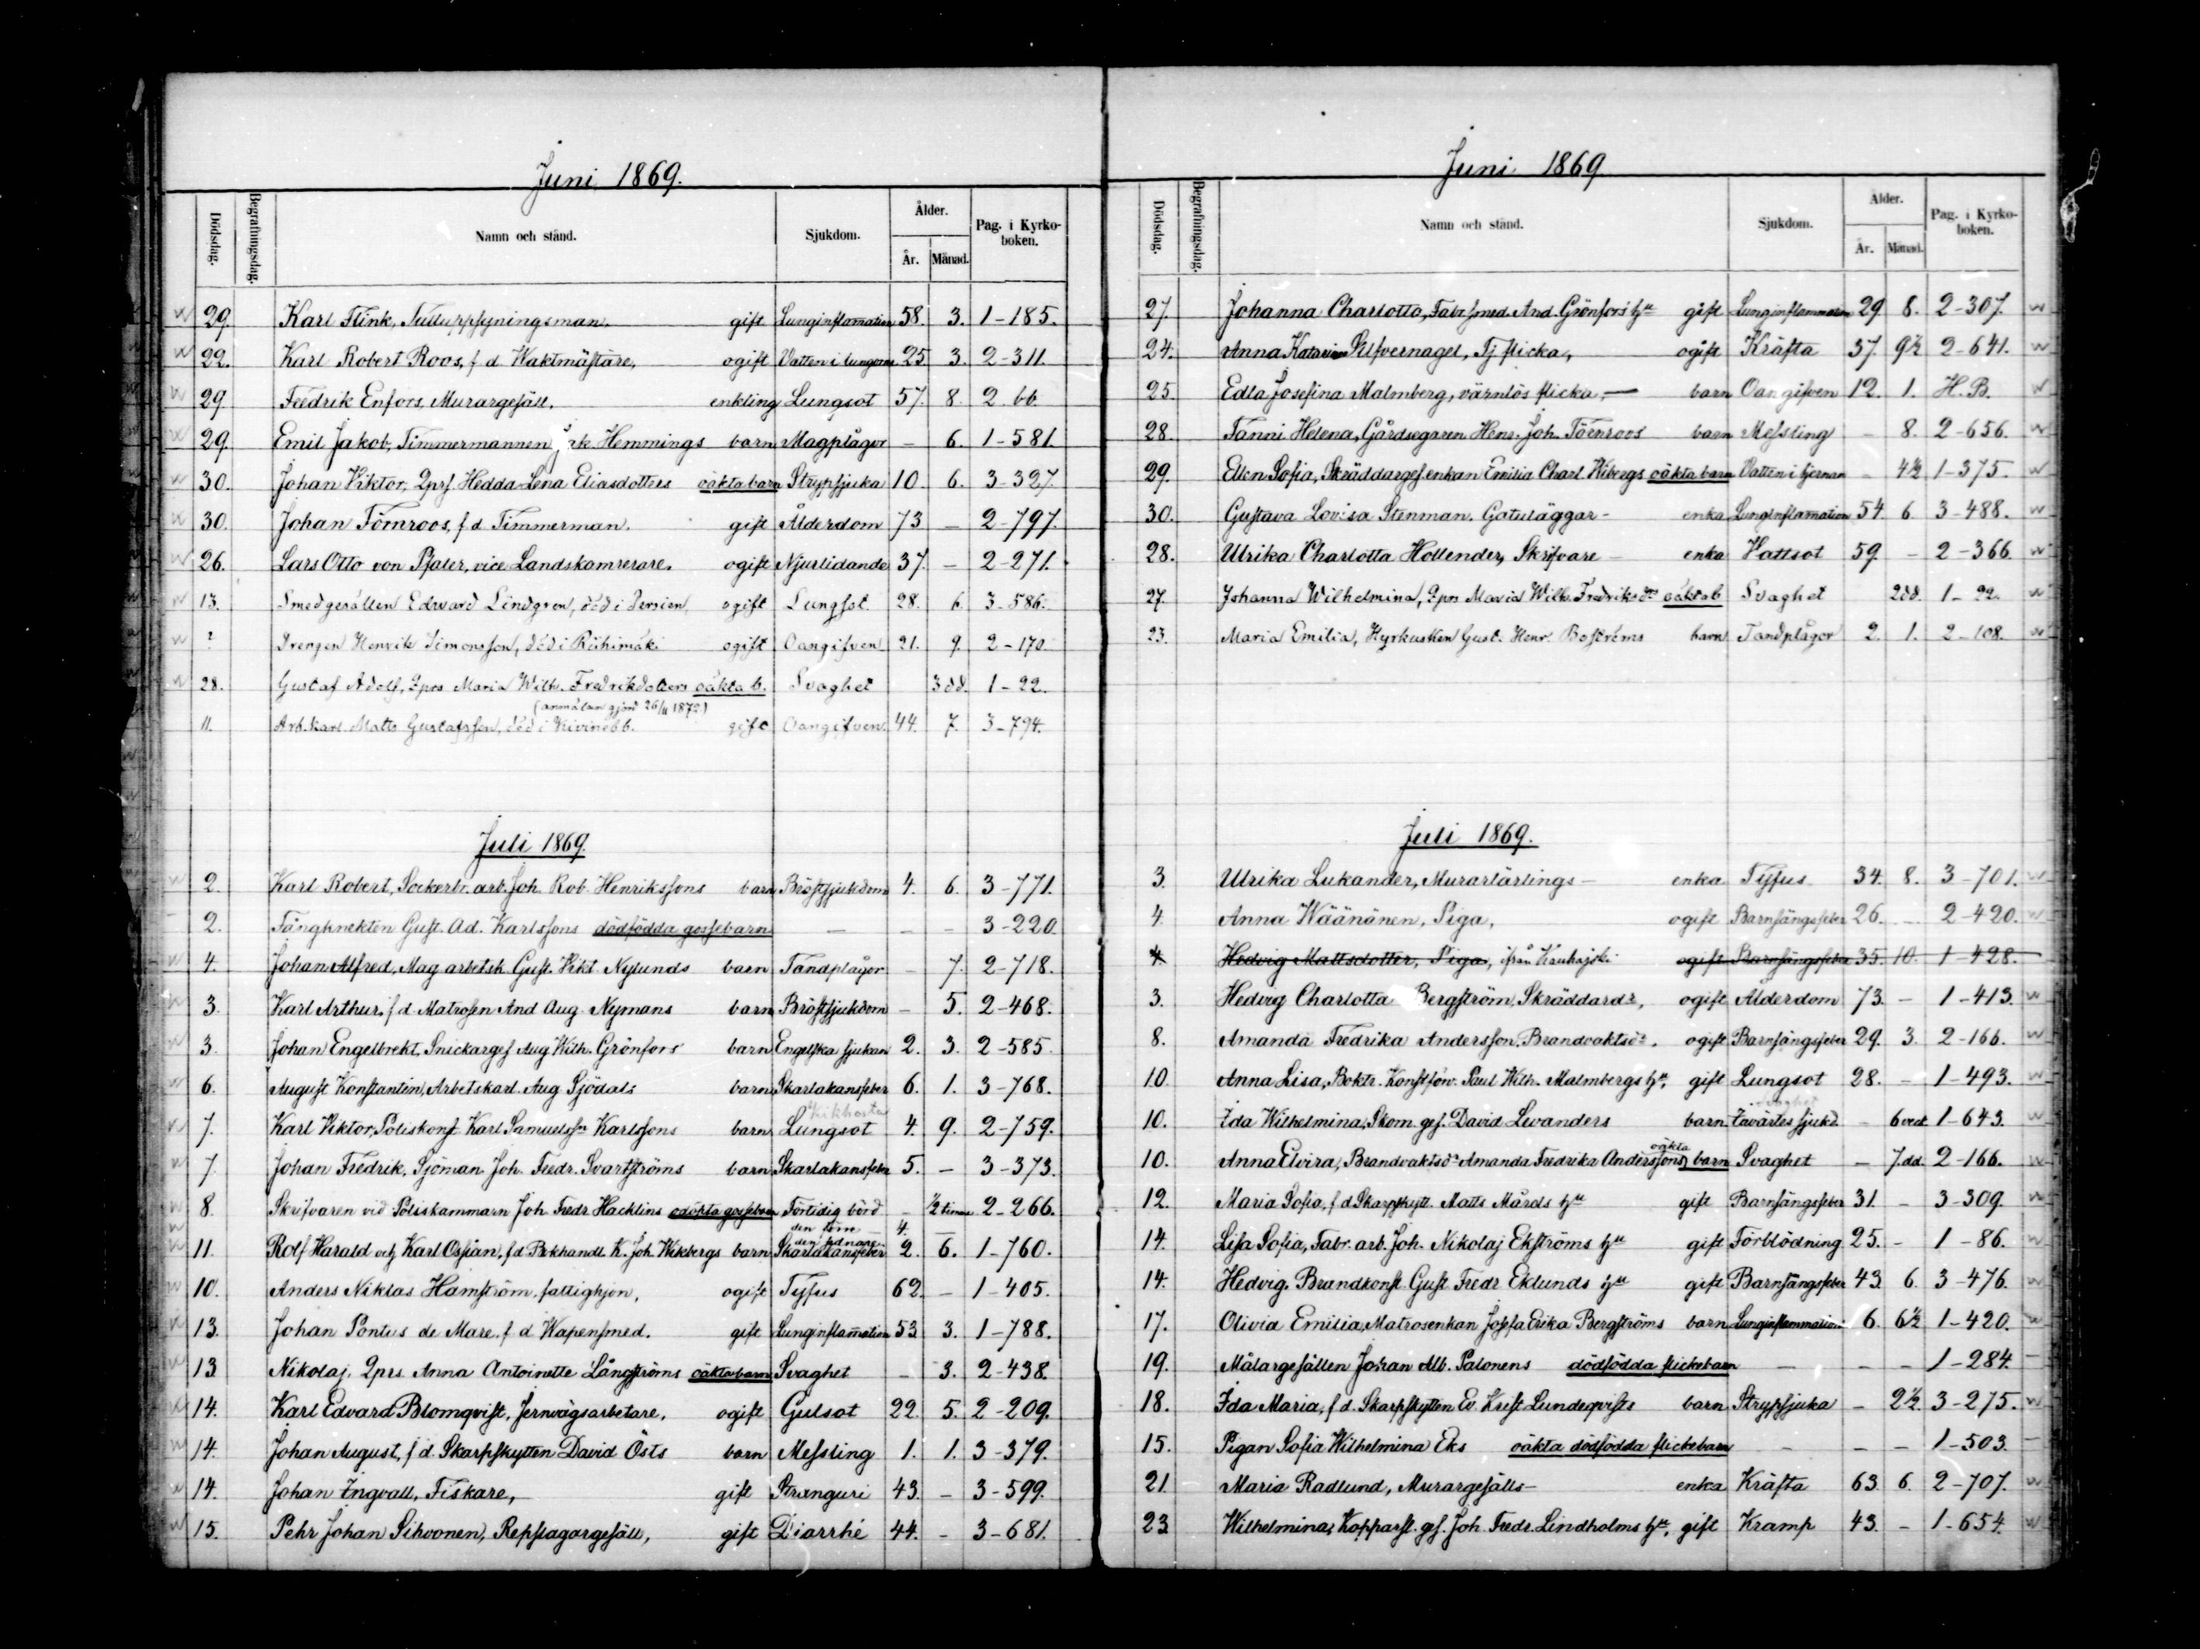 Juni 1869.
Dödsdag. Begrafningsdag. Namn och stånd. Sjukdom. Ålder. År. Månad. Pag. i Kyrkoboken.
29. Karl Flink, gift Lunginflamation 58. 3. 1-185.
22. Karl Robert Roos, f d Waktmästare, ogift Vatten i lungorna 25 3. 2-311.
29 Fredrik Enfors, Murargesäll. enkling Lungsot 57. 8. 2 66.
29. Emil Jakob, Timmermannen Hemmings barn Magplågor - 6. 1-581.
30. Johan Viktor, Qprs. Hedda Lena Eliasdotters oäkta barn Strypsjuka 10. 6. 3-327.
30. Johan Törnroos, f d Timmerman. gift Ålderdom 73 - 2-797.
26. Lars Otto von Pfaler, vice Landskamrerare. ogift Njurlidande 37. - 2-271.
13. Smedgesällen Edward Lindgren, död i Persien ogift Lungsot 28. 6. 3-586.
? Drengen Henrik Simonsson, död i Riihimäki ogift Oangifven 21. 9. 2-170.
28. Gustaf Adolf, Qprs Maria Wilh. Fredrikdotters oäkta b. Svaghet 3 dd. 1-22.
(anmälan gjord 26/11 1872)
11. Arb.karl Matts Gustafsson, död i Kivinebb. gift Oangifven 44. 7. 3-794.
Juli 1869.
2. Karl Robert, Sockerbr. arb. Joh. Rob. Henrikssons barn Bröstsjukdom 4. 6. 3-771.
2. Fångknekten Gust. Ad. Karlssons dödfödda gossebarn - - - 3-220.
4. Johan Alfred, Mag arbetsk. Gust. Vikt. Nylunds barn Tandplågor - 7. 2-718.
3. Karl Arthur, f d Matrosen And Aug. Nymans barn Bröstsjukdom - 5. 2-468.
3. Johan Engelbrekt, Snickarges Aug Wilh. Grönfors barn Engelska sjukan 2. 3. 2-585.
6. August Konstantin, Arbetskarl. Aug Sjödals barn Skarlakansfeber 6. 1. 3-768.
Kikhosta
7. Karl Viktor, Poliskonst Karl Samuelssn Karlssons barn Lungsot 4. 9. 2-759.
7. Johan Fredrik, Sjöman Joh. Fredr. Svartströms barn Skarlakansfeber 5. - 3-373.
8. Skrifvaren vid Poliskammarn Joh. Fredr. Hacklins odöpta gossebarn Förtidig börd - 1/2 timme 2-266.
den förre 4. -
den sednare
11. Rolf Harald och Karl Ossian, f d Bokhandl. K. Joh. Wikbergs barn Skarlakansfeber 2. 6. 1-760.
10. Anders Niklas Hamström, fattighjon, ogift Tyfus 62. - 1-405.
13. Johan Pontus de Mare, f d Wapensmed. gift Lunginflamation 53. 3. 1-788.
13 Nikolaj, Qprs. Anna Antoinette Långströms oäkta barn Svaghet - 3. 2-438.
14. Karl Edvard Blomqvist, Jernvägsarbetare, ogift Gulsot 22. 5. 2-209.
14. Johan August, f d Skarpskytten David Östs barn Messling 1. 1. 3-379.
14. Johan Ingvall, Fiskare, gift Stranguri 43. - 3-599.
15. Pehr Johan Sihvonen, Repslagargesäll, gift Diarrhé 44. - 3-681.
Juni 1869
Dödsdag. Begrafningsdag. Namn och stånd. Sjukdom. Ålder. År. Månad. Pag. i Kyrkoboken.
27. Johanna Charlotta, Fabr.smed. And. Grönfors hu gift Lunginflammation 29 8. 2-307.
24. Anna Katarina Silfvernagel, Tj flicka, ogift Kräfta 37. 9½ 2-641.
25. Edla Josefina Malmberg, värnlös flicka, barn Oangifven 12. 1. H.B.
28. Fanni Helena, Gårdsegaren Henr. Joh. Törnroos barn Messling - 8. 2-656.
29. Ellen Sofia, Skräddarges.enkan Emilia Charl. Wibergs oäkta barn Vatten i hjernan - 4½ 1-375.
30. Gustava Lovisa Stenman, Gatuläggar- enka Lunginflamation 54. 6. 3-488.
28. Ulrika Charlotta Hollender, Skrifvare enka Vattsot 59. - 2-366.
27. Johanna Wilhelmina, Qprs Maria Wilh. Fredriksdrs oäkta b Svaghet 2dd. 1-22.
23. Maria Emilia, Hyrkusken Gust. Henr. Boströms barn Tandplågor 2. 1. 2-108.
Juli 1869.
3. Ulrika Lukander, Murarlärlings- enka Tyfus 34. 8. 3-701.
4. Anna Wäänänen, Piga, ogift Barnsängsfeber 26. - 2-420.
4. Hedvig Mattsdotter, Piga, ifrån ogift Barnsängsfeber 35. 10. 1-428.
3. Hedvig Charlotta Bergström, Skräddardr, ogift Ålderdom 73. - 1-413.
8. Amanda Fredrika Andersson, Brandvaktsdr. ogift Barnsängsfeber 29. 3. 2-166.
10. Anna Lisa, Boktr. Konstförv. Paul Wilh. Malmbergs hu, gift Lungsot 28. - 1-493.
Svaghet
10. Ida Wilhelmina, Skom. ges. David Levanders barn Invärtes sjukd. - 6 veck. 1-643.
oäkta
10. Anna Elvira, Brandvaktsdr Amanda Fredrika Anderssons barn Svaghet - 7.dd. 2-166.
12. Maria Sofia, f d Skarpskytt. Matts Mårds hu gift Barnsängsfeber 31. - 3-309.
14. Lisa Sofia, Fabr. arb. Joh. Nikolaj Ekströms hu gift Förblödning 25. - 1-86.
14. Hedvig, Brandkonst Gust Fredr Eklunds hu gift Barnsängsfeber 43. 6. 3-476.
17. Olivia Emilia, Matrosenkan Josefa Erika Bergströms barn Lunginflammation 6. 6½ 1-420.
19. Målargesällen Johan Alb. Palonens dödfödda flickebarn - - - 1-284.
18. Ida Maria, f d Skarpskytten Ev. Krist Lundeqvists barn Strypsjuka - 2½ 3-275.
15. Pigan Sofia Wilhelmina Eks oäkta dödfödda flickebarn - - - 1-503.
21. Maria Radlund, Murargesälls- enka Kräfta 63. 6. 2-707.
23 Wilhelmina, Kopparsl. ges. Joh. Fredr. Lindholms hu, gift Kramp 43. - 1-654.